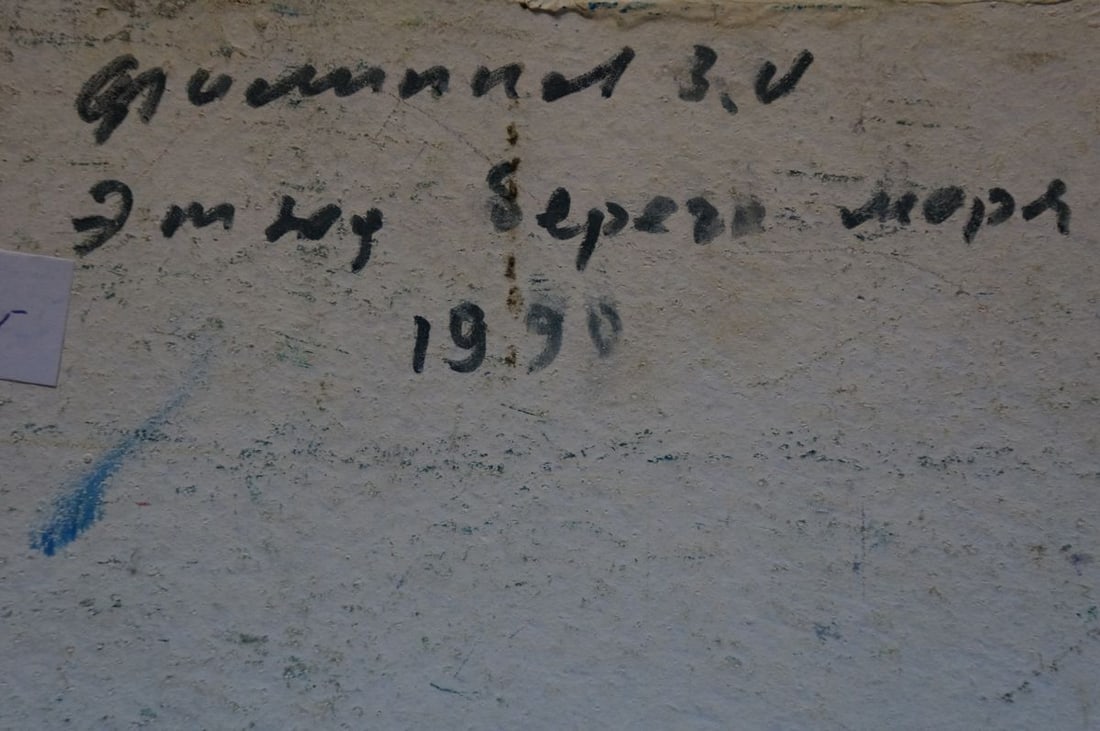 Филиппов З.И
Этюд берега моря
1990